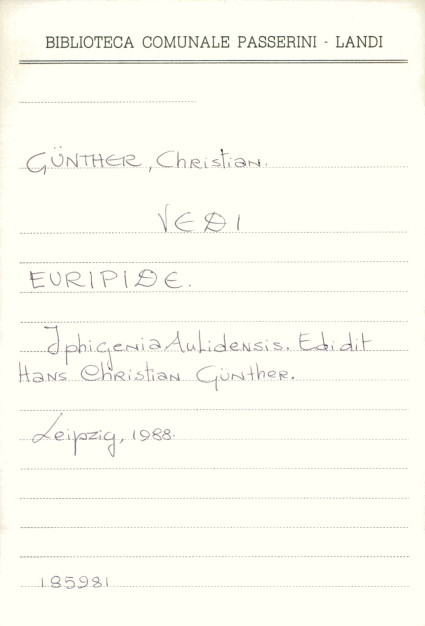 BIBLIOTECA COMUNALE PASSERINI - LANDI
GÜNTHER, Christian.
VEDI
EURIPIDE.
Iphigenia Aulidensis. Edidit
Hans Christian Günther.
Leipzig, 1988.
185981